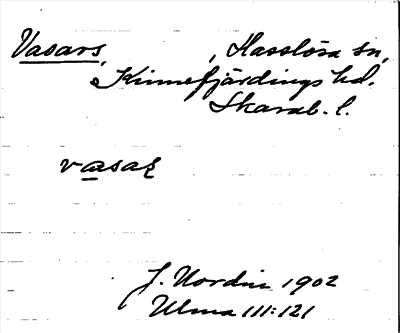 Vasars, , Hasslösa sn,
Kinnefjärdings hd.
Skarab. l.
vasaʀ
J. Nordin 1902
Ulma 111:121